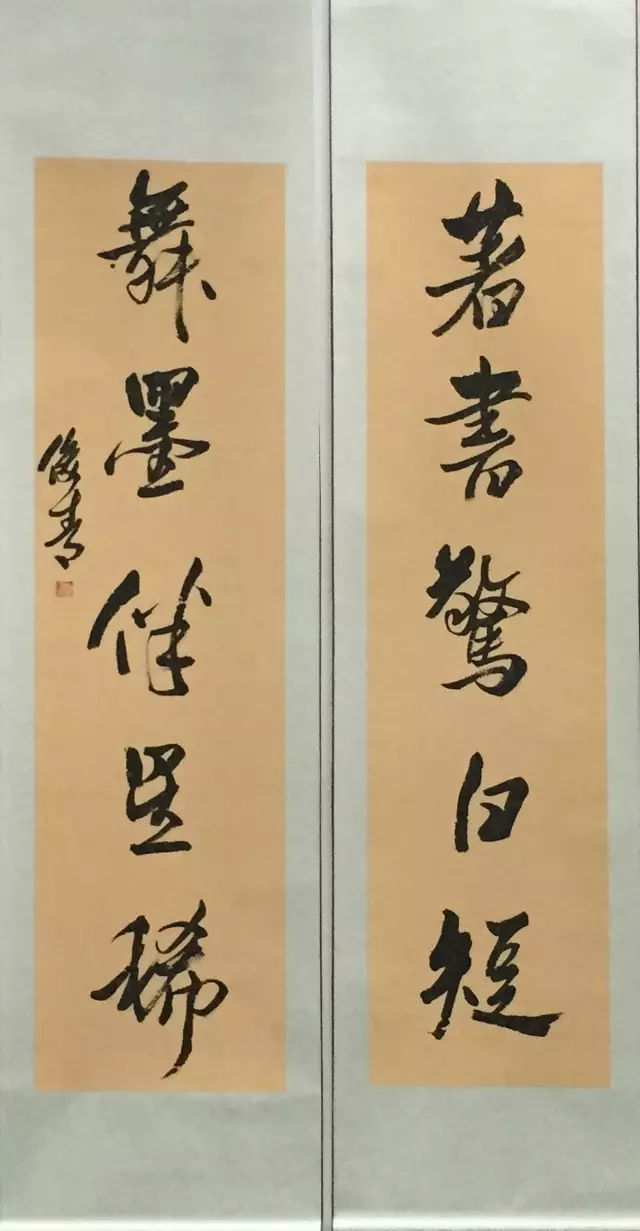 著書驚日短
舞墨伴星稀
俊青